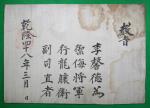 敎旨
李馨德爲
禦侮將軍
行龍驤衛
副司直者
乾隆四十八年三月 日